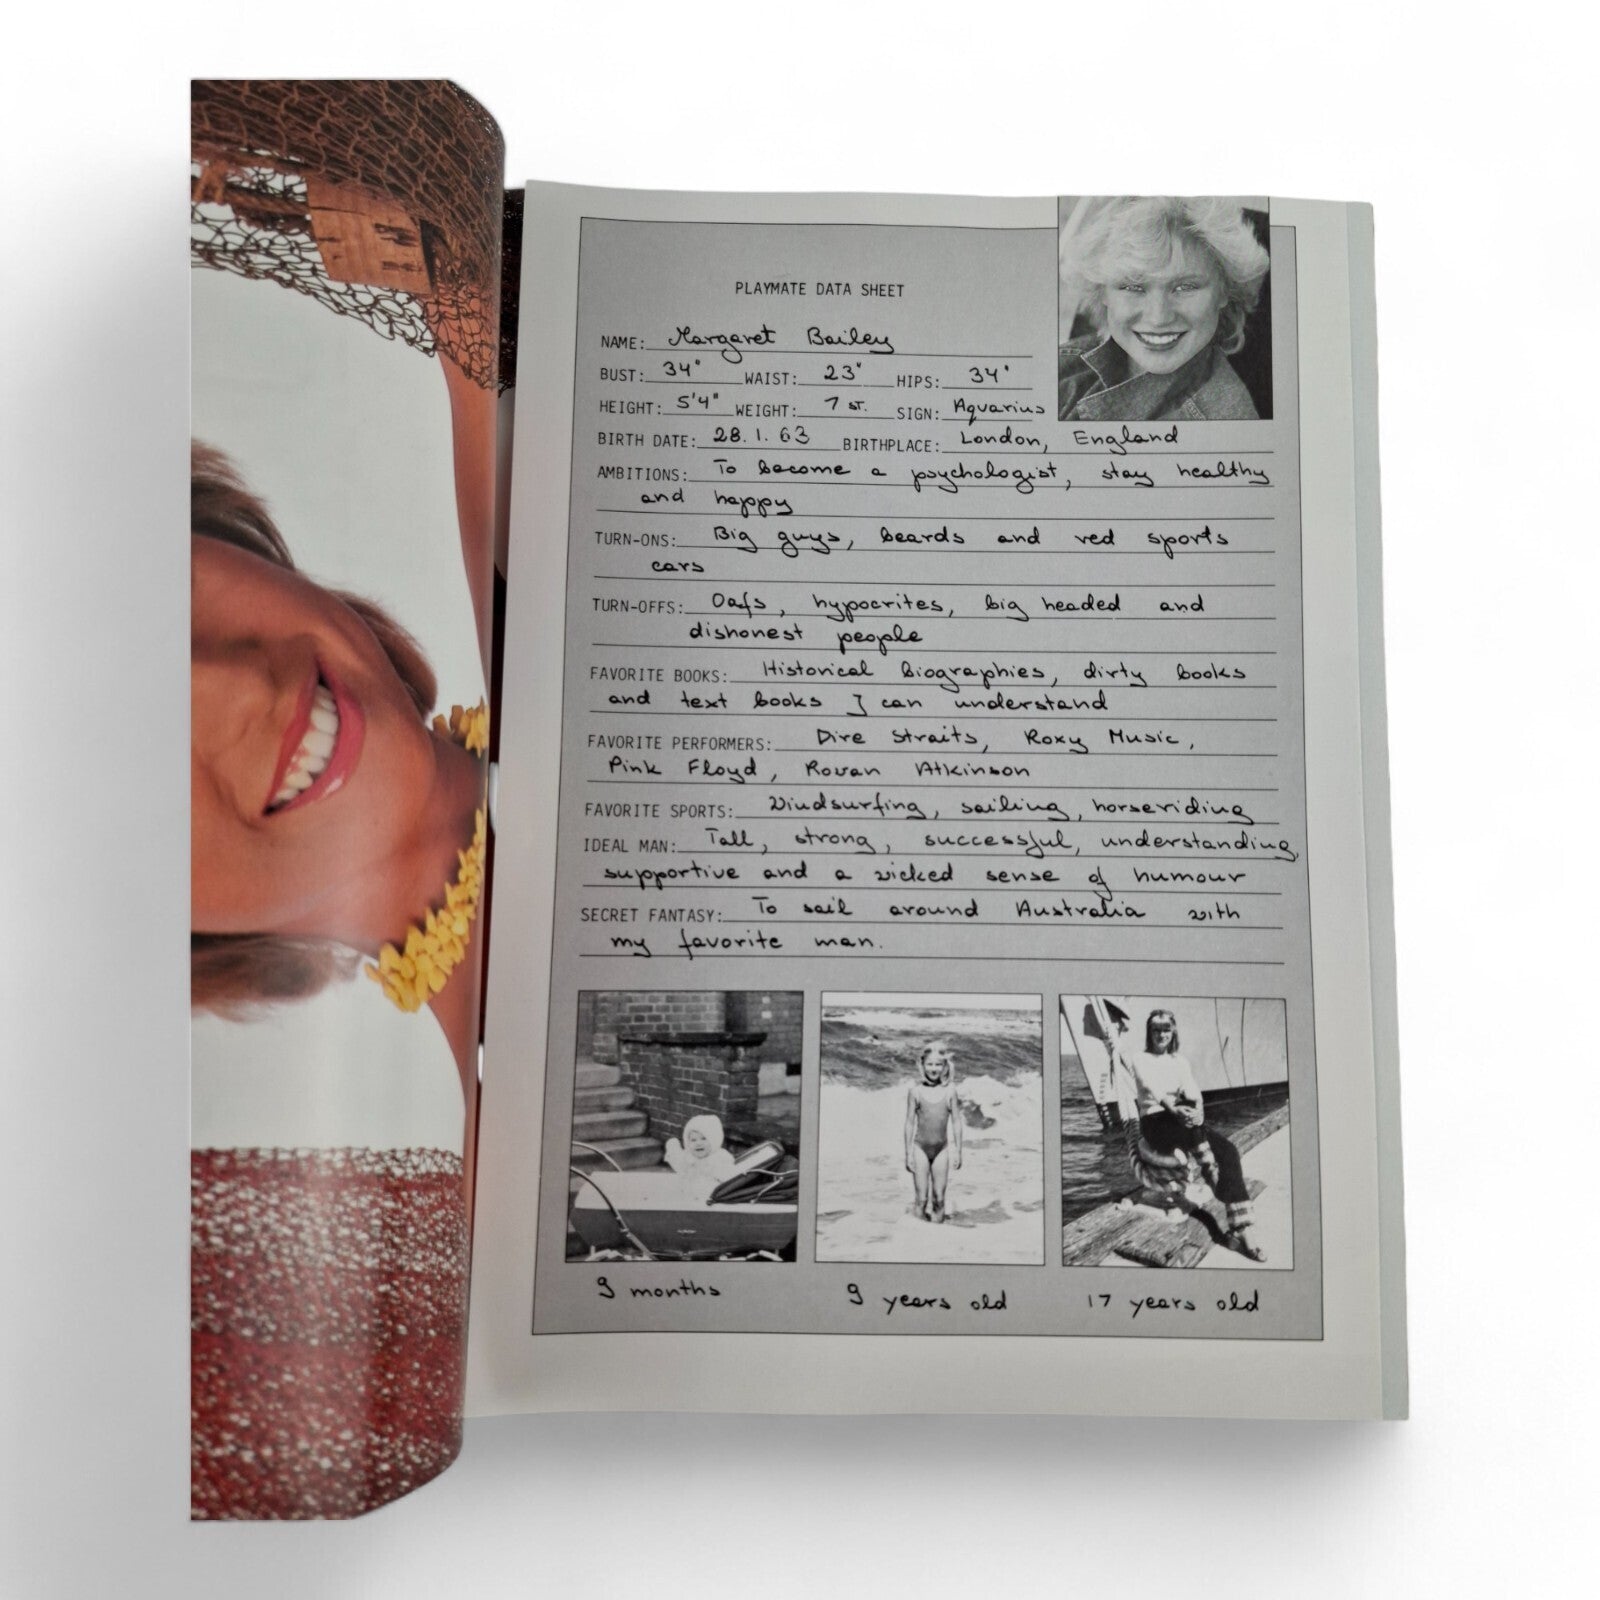 PLAYMATE DATA SHEET
NAME: Margaret Bailey
BUST: 34" WAIST: 23" HIPS: 34"
HEIGHT: 5'4" WEIGHT: 7 ST. SIGN: Aquarius
BIRTH DATE: 28.1.63 BIRTHPLACE: London, England
AMBITIONS: To become a psychologist, stay healthy
and happy
TURN-ONS: Big guys, beards and red sports
cars
TURN-OFFS: Oafs, hypocrites, big headed and
dishonest people
FAVORITE BOOKS: Historical biographies, dirty books
and text books I can understand
FAVORITE PERFORMERS: Dire Straits, Roxy Music,
Pink Floyd, Rowan Atkinson
FAVORITE SPORTS: Windsurfing, sailing, horseriding
IDEAL MAN: Tall, strong, successful, understanding,
supportive and a wicked sense of humour
SECRET FANTASY: To sail around Australia with
my favorite man.
9 months
9 years old
17 years old